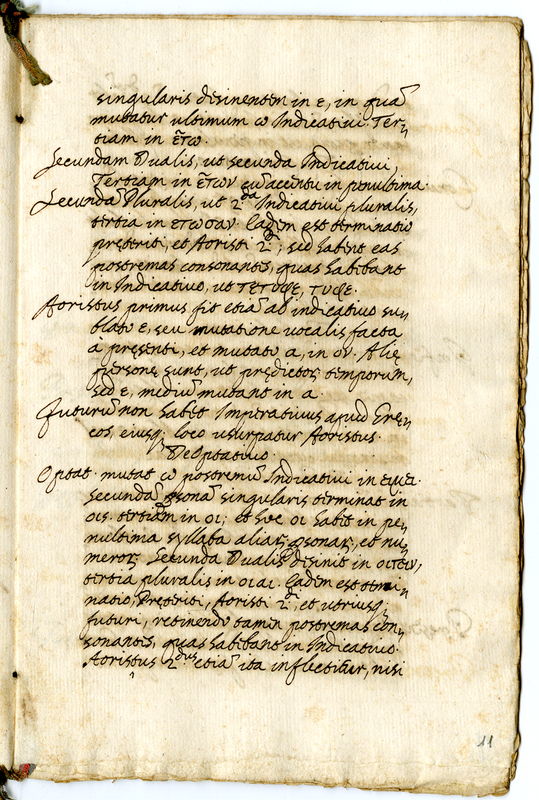 singularis desinentem in ε, in quã
mutatur ultimum ω Indicativi. Ter„
tiam in έτω.
Secundam Dualis, ut secunda Indicativi,
Tertiam in έτων cũ accentu in penultima.
Secundã Pluralis, ut 2.da Indicativi pluralis,
tertia in ετωσαν. Eadem est terminatio
pręteriti, et Aoristi 2.di; sed habent eas
postremas consonantes, quas habebant
in Indicativo, ut τετυφε, τυφε.
Aoristus primus fit etiã ab indicativo su„
blato ε, seu mutatione vocalis facta
à pręsenti, et mutato α, in ον. Alię
personę sunt, ut prędictoꝝ temporum,
sed ε, mediũ mutant in α.
Futurũ non habet Imperativus apud Grę„
cos, eiusq; loco usurpatur Aoristus.
De Optativo.
Optat. mutat ω postremũ Indicativi in οιμι.
Secundã psonã singularis terminat in
οις. tertiam in οι; et hoc οι habet in pe„
nultima syllaba aliaꝝ psonaꝝ, et nu„
meroꝝ. Secunda Dualis desinit in οιτον,
tertia pluralis in οιαι. Eadem est termi„
natio, Pręteriti, Aoristi 2.di, et utriusq;
futuri, retinendo tamen postremas con„
sonantes, quas habebant in Indicativo.
Aoristus 2.dus etiã ita inflectitur, nisi
11